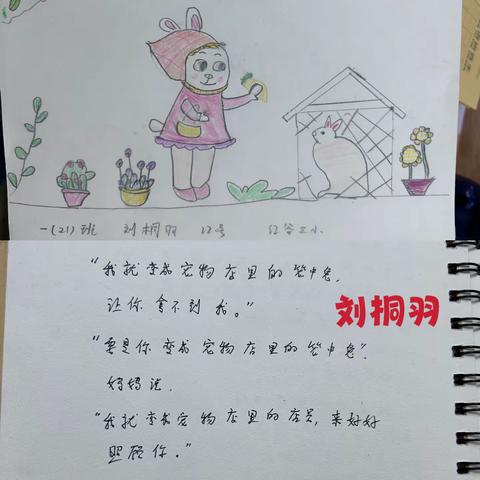 一(21)班 刘桐羽 22号 红谷三小
"我就变成宠物店里的笼中兔,
让你拿不到我。"
刘桐羽
"要是你变成宠物店里的笼中兔",
妈妈说.
"我就变成宠物店里的店员,来好好
照顾你。"